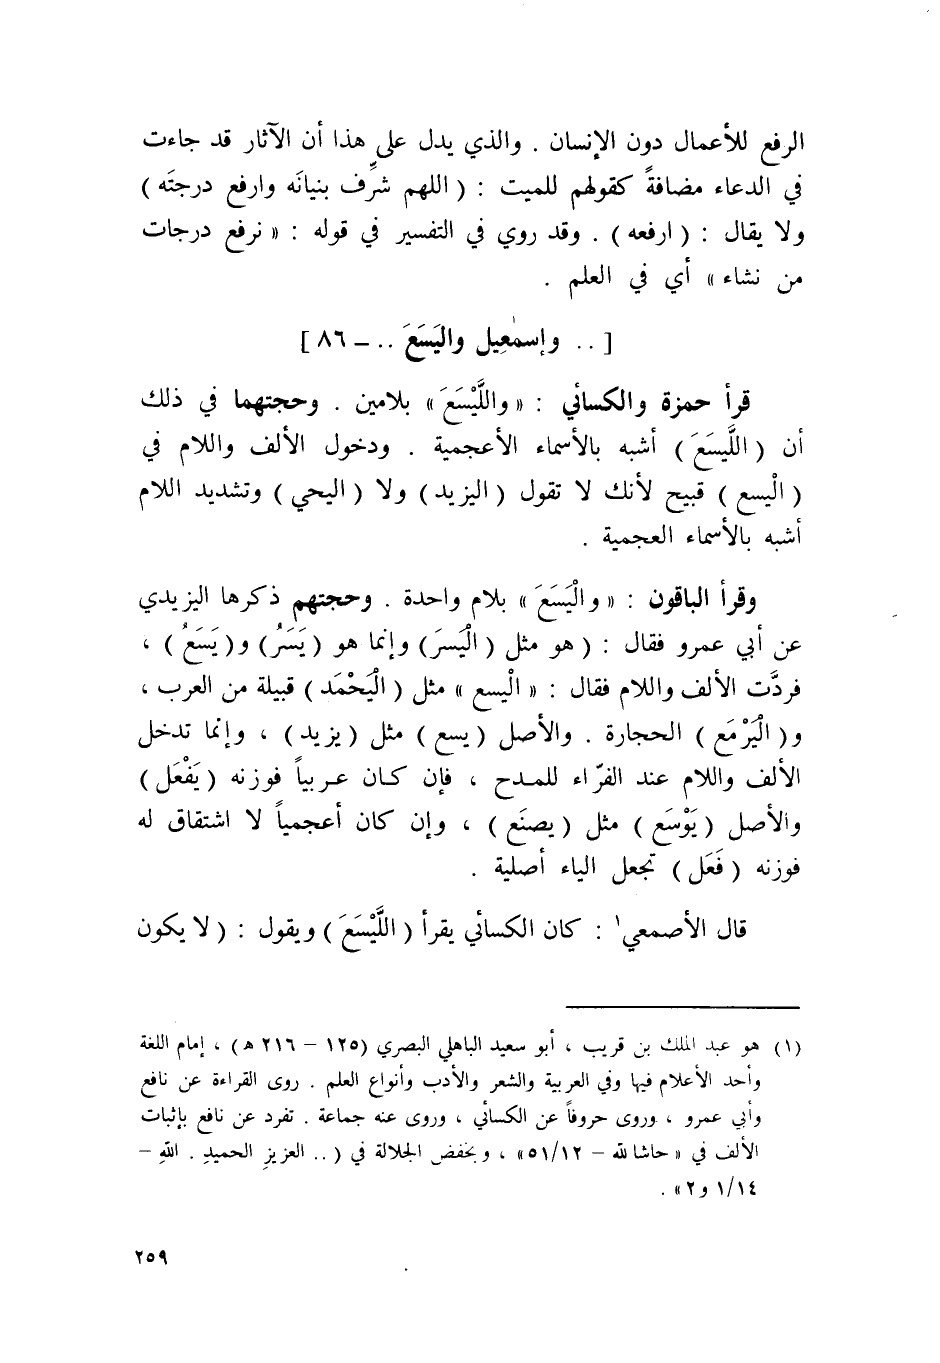 الرفع للأعمال دون الإنسان . والذي يدل على هذا أن الآثار قد جاءت
في الدعاء مضافةً كقولهم للميت : ( اللهم شرِّف بنيانَه وارفع درجتَه )
ولا يقال : ( ارفعه ) . وقد روي في التفسير في قوله : « نرفع درجات
من نشاء » أي في العلم .
[ .. وإسمٰعِيل واليَسَعَ .. ــ ٨٦ ]
قرأ حمزة والكسائي : « واللَّيْسَعَ » بلامين . وحجتهما في ذلك
أن ( اللَّيسَعَ ) أشبه بالأسماء الأعجمية . ودخول الألف واللام في
( الْيسع ) قبيح لأنك لا تقول ( اليزيد ) ولا ( اليحي ) وتشديد اللام
أشبه بالأسماء العجمية .
وقرأ الباقون : « والْيَسَعَ » بلام واحدة . وحجتهم ذكرها اليزيدي
عن أبي عمرو فقال : ( هو مثل ( الْيَسرَ ) وإنما هو ( يَسَرُ ) و( يَسَعُ ) ،
فردَّت الألف واللام فقال : « الْيسع » مثل ( الْيَحْمَد ) قبيلة من العرب ،
و( الْيَرْمَع ) الحجارة . والأصل ( يسع ) مثل ( يزيد ) ، وإنما تدخل
الألف واللام عند الفرّاء للمدح ، فإن كان عربياً فوزنه ( يَفْعَل )
والأصل ( يَوْسَع ) مثل ( يصنَع ) ، وإن كان أعجمياً لا اشتقاق له
فوزنه ( فَعَل ) تجعل الياء أصلية .
قال الأصمعي١ : كان الكسائي يقرأ ( اللَّيْسَعَ ) ويقول : ( لا يكون
(١) هو عبد الملك بن قريب ، أبو سعيد الباهلي البصري (١٢٥ – ٢١٦ ه) ، إمام اللغة
وأحد الأعلام فيها وفي العربية والشعر والأدب وأنواع العلم . روى القراءة عن نافع
وأبي عمرو ، وروى حروفاً عن الكسائي ، وروى عنه جماعة . تفرد عن نافع بإثبات
الألف في « حاشا لله – ٥١/١٢» ، وبخفض الجلالة في ( .. العزيزِ الحميدِ . اللهِ –
١/١٤ و٢» .
٢٥٩